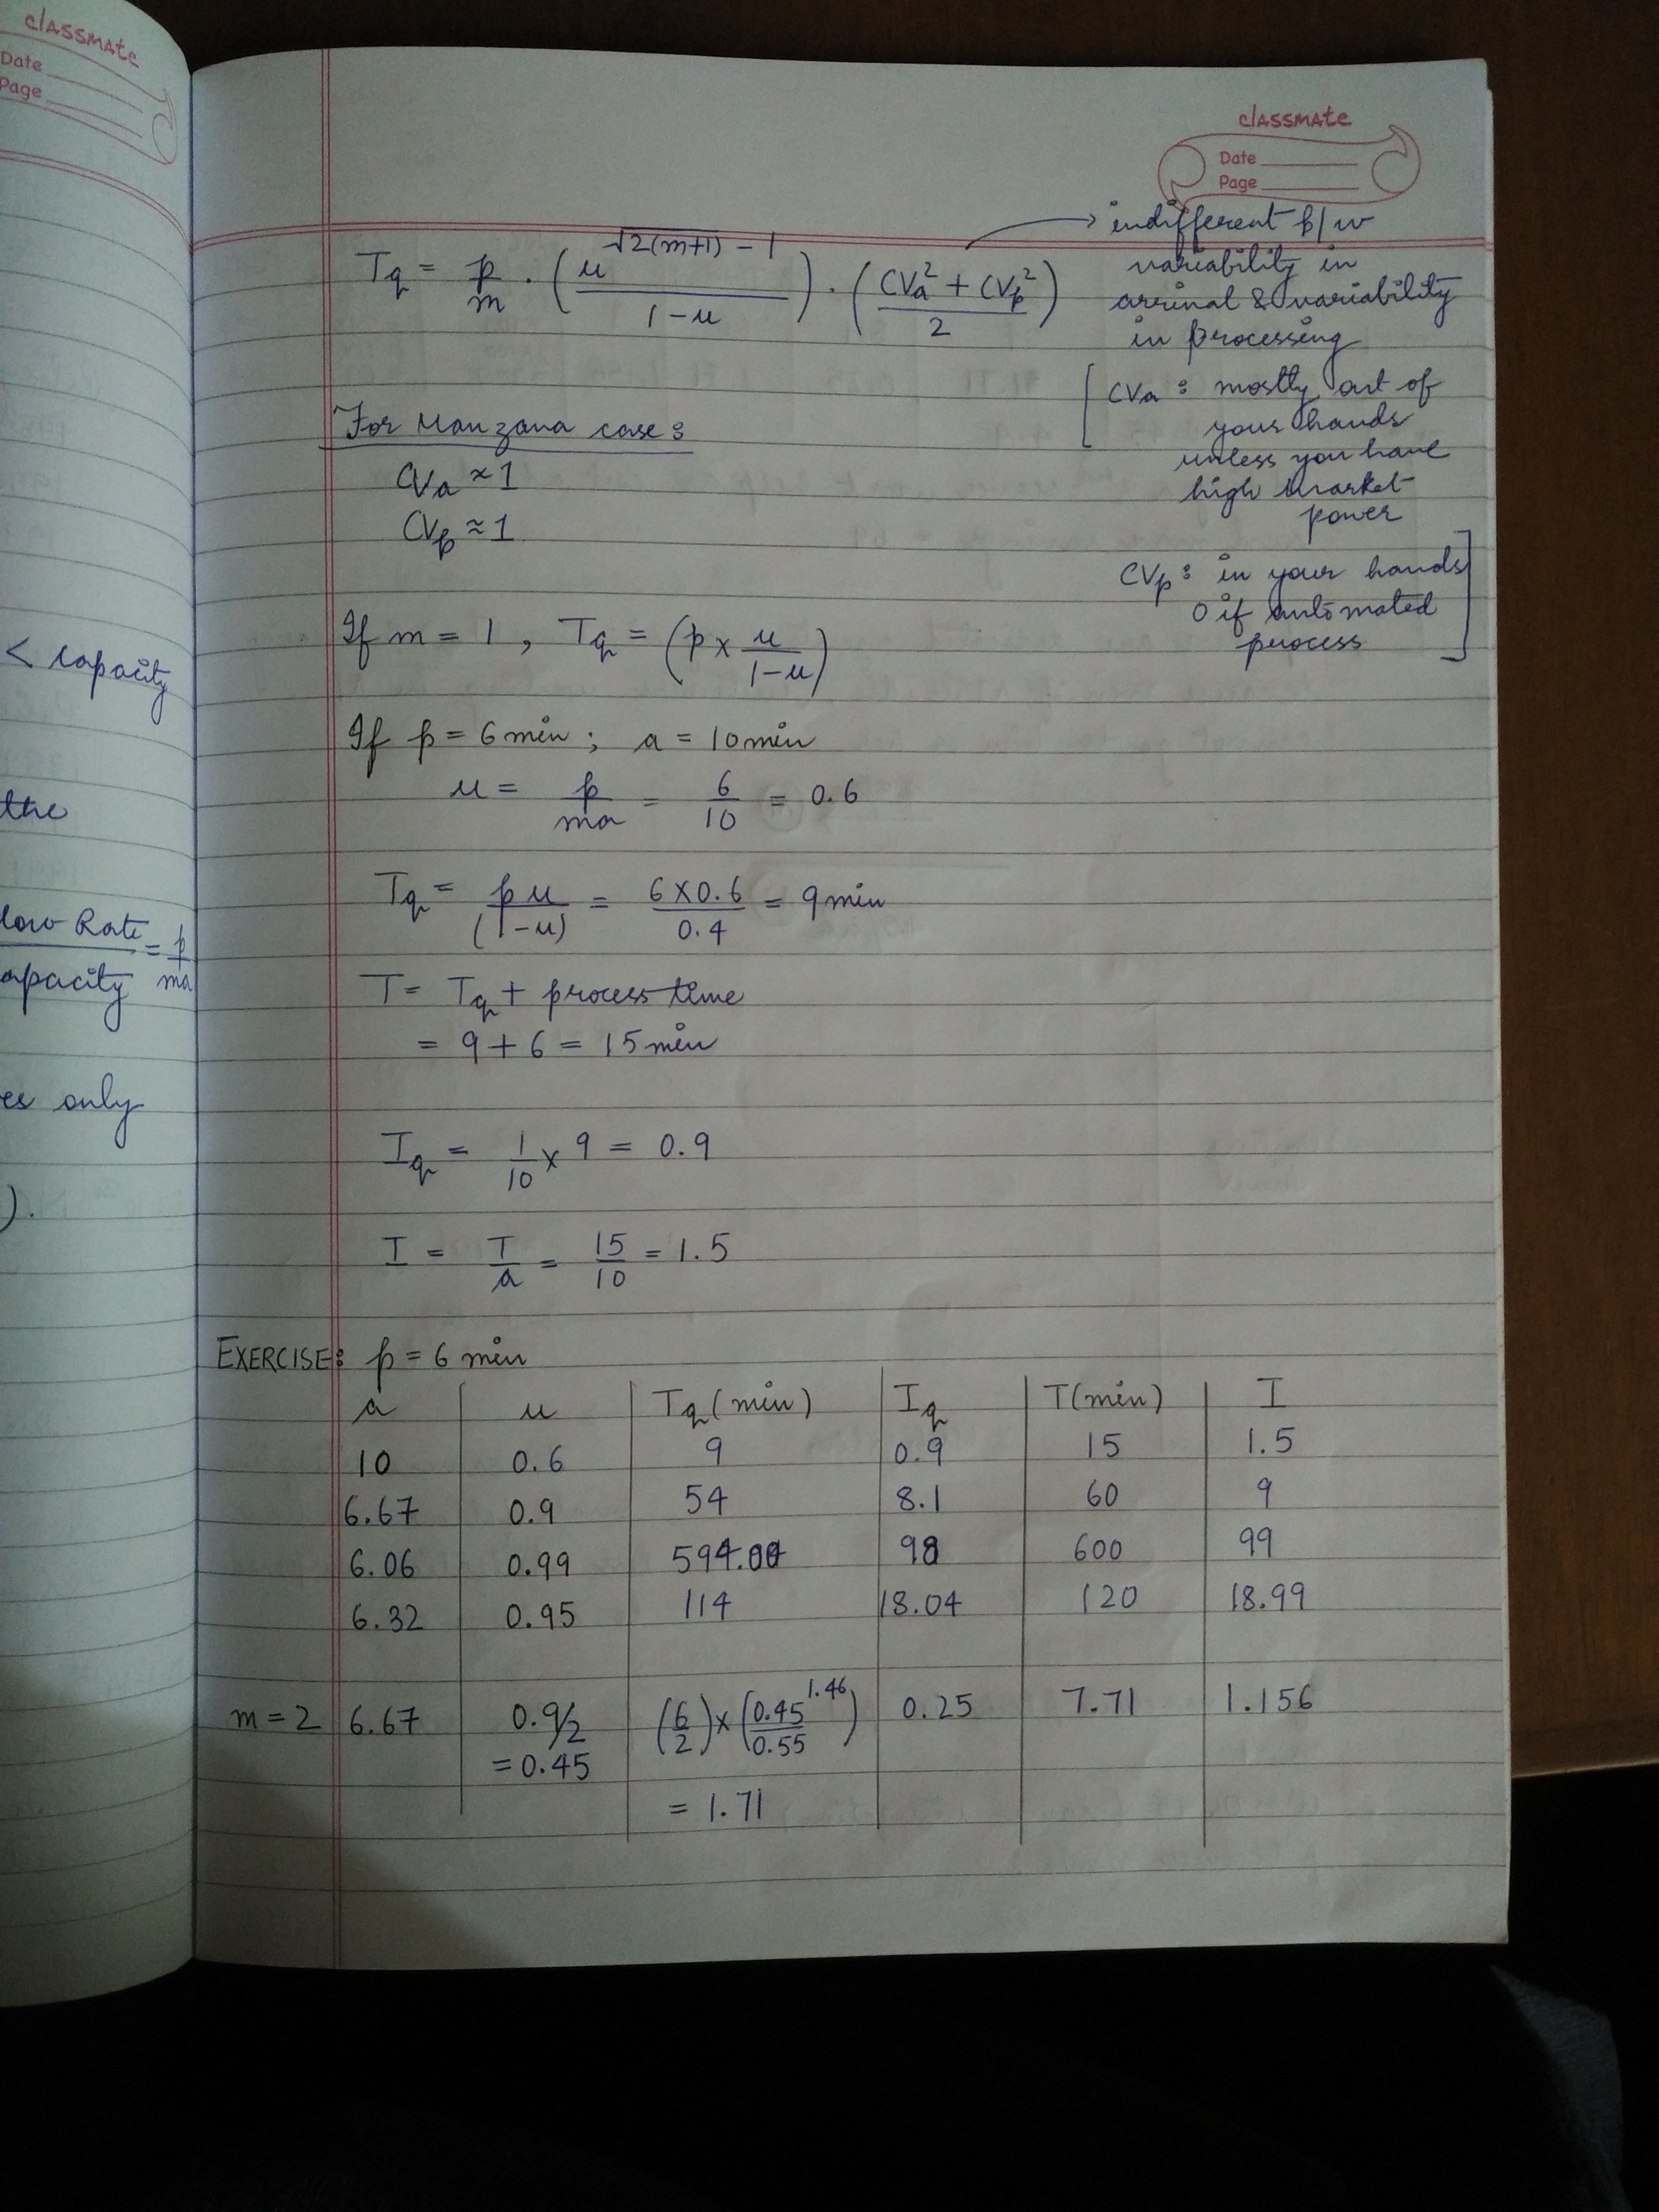 classmate
Date
Page
< capacity
the
low Rate = p
apacity ma
es only
).
classmate
Date
Page
Tq = p/m · (u^(√2(m+1) - 1) / 1-u) · (CVa² + CVp² / 2)
→ indifferent b/w
variability in
arrival & variability
in processing
[CVa : mostly out of
your hands
unless you have
high market
power
CVp : in your hands
0 if automated
process]
For Manzana case :
CVa ≈ 1
CVp ≈ 1
If m = 1 , Tq = (p × u/1-u)
If p = 6 min ; a = 10 min
u = p/ma = 6/10 = 0.6
Tq = p u/(1-u) = 6×0.6/0.4 = 9 min
T = Tq + process time
= 9 + 6 = 15 min
Iq = 1/10 × 9 = 0.9
I = T/a = 15/10 = 1.5
EXERCISE: p = 6 min
a u Tq (min) Iq T(min) I
10 0.6 9 0.9 15 1.5
6.67 0.9 54 8.1 60 9
6.06 0.99 594.00 98 600 99
6.32 0.95 114 18.04 120 18.99
m = 2 6.67 0.9/2 (6/2) × (0.45^1.46/0.55) 0.25 7.71 1.156
= 0.45
= 1.71